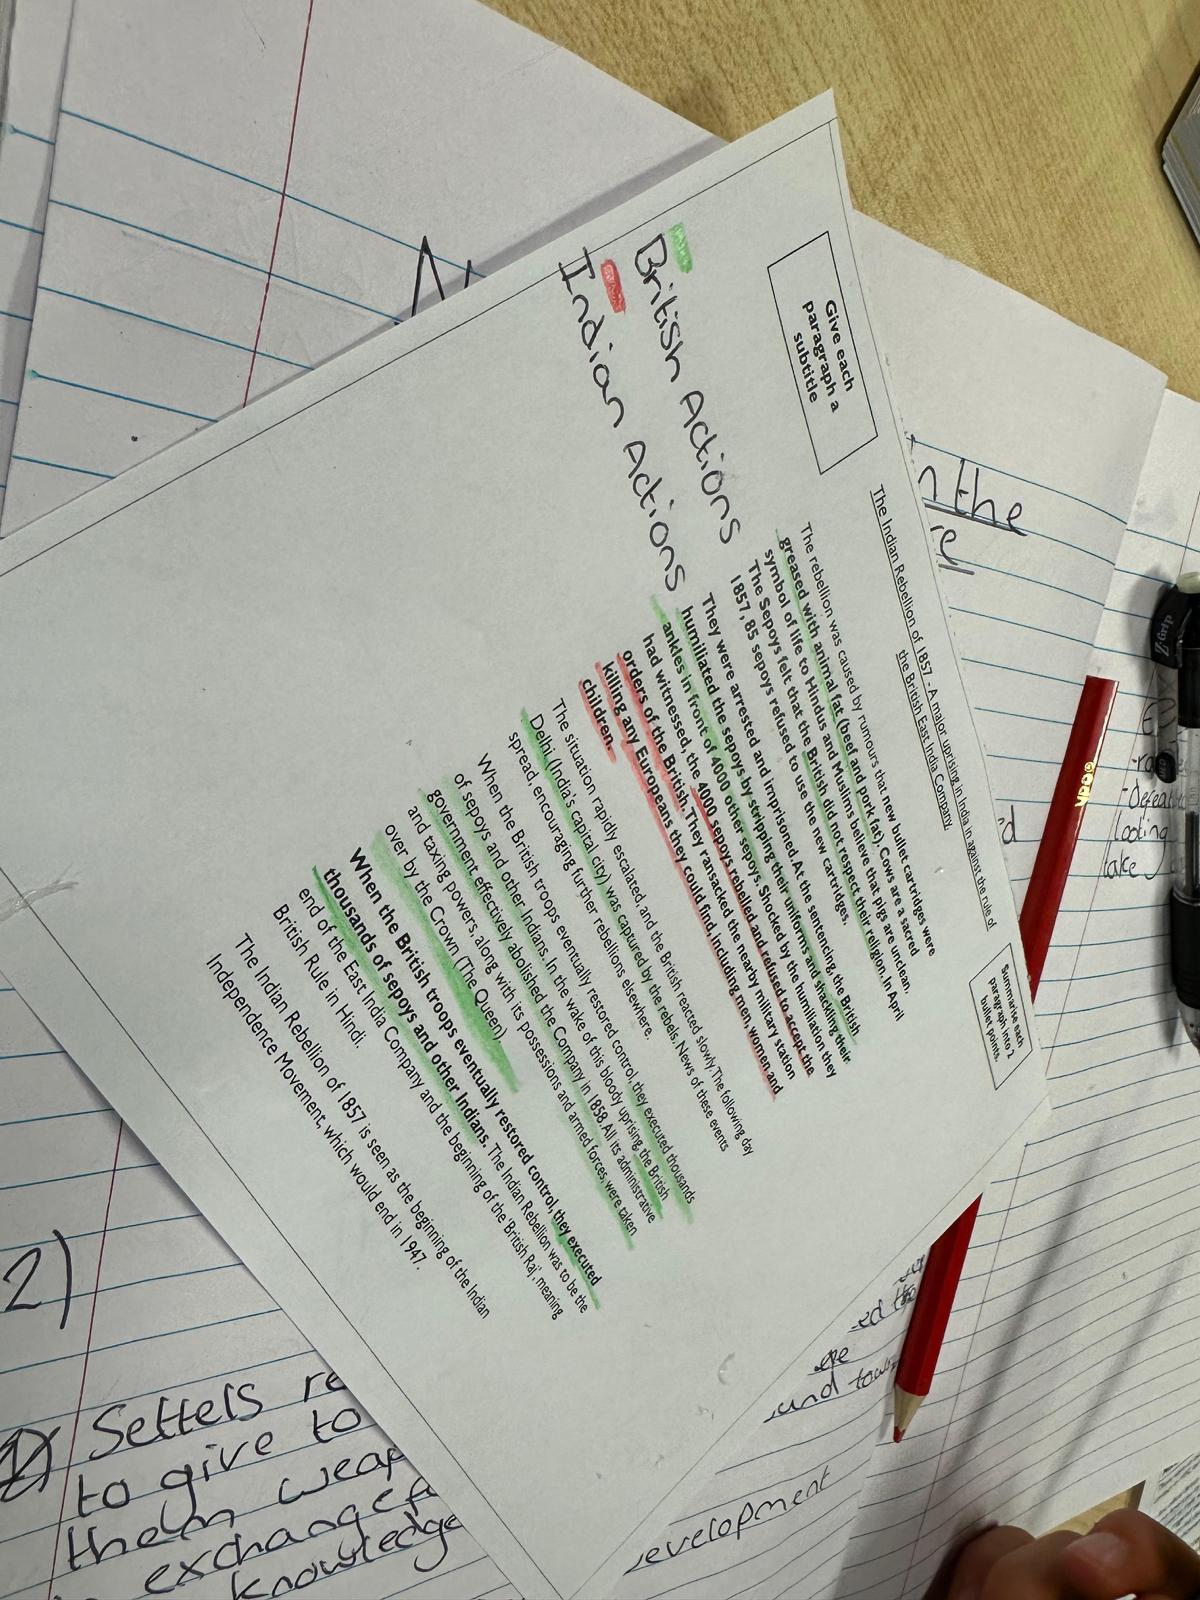 The Indian Rebellion of 1857 - A major uprising in India in against the rule of
the British East India Company.
Give each
paragraph a
subtitle
Summarise each
paragraph into 2
bullet points.
British Actions
Indian Actions
The rebellion was caused by rumours that new bullet cartridges were
greased with animal fat (beef and pork fat). Cows are a sacred
symbol of life to Hindus and Muslims believe that pigs are unclean.
The Sepoys felt that the British did not respect their religion. In April
1857, 85 sepoys refused to use the new cartridges.
They were arrested and imprisoned. At the sentencing, the British
humiliated the sepoys by stripping their uniforms and shackling their
ankles in front of 4000 other sepoys. Shocked by the humiliation they
had witnessed, the 4000 sepoys rebelled and refused to accept the
orders of the British. They ransacked the nearby military station
killing any Europeans they could find, including men, women and
children.
The situation rapidly escalated, and the British reacted slowly. The following day
Delhi (India's capital city) was captured by the rebels. News of these events
spread, encouraging further rebellions elsewhere.
When the British troops eventually restored control, they executed thousands
of sepoys and other Indians. In the wake of this bloody uprising, the British
government effectively abolished the Company in 1858. All its administrative
and taxing powers, along with its possessions and armed forces, were taken
over by the Crown (The Queen).
When the British troops eventually restored control, they executed
thousands of sepoys and other Indians. The Indian Rebellion was to be the
end of the East India Company and the beginning of the 'British Raj', meaning
British Rule in Hindi.
The Indian Rebellion of 1857 is seen as the beginning of the Indian
Independence Movement, which would end in 1947.
n the
re
2)
1) Settels re
to give to
them weap
exchange fo
knowledge
evelopment
Z-Grip